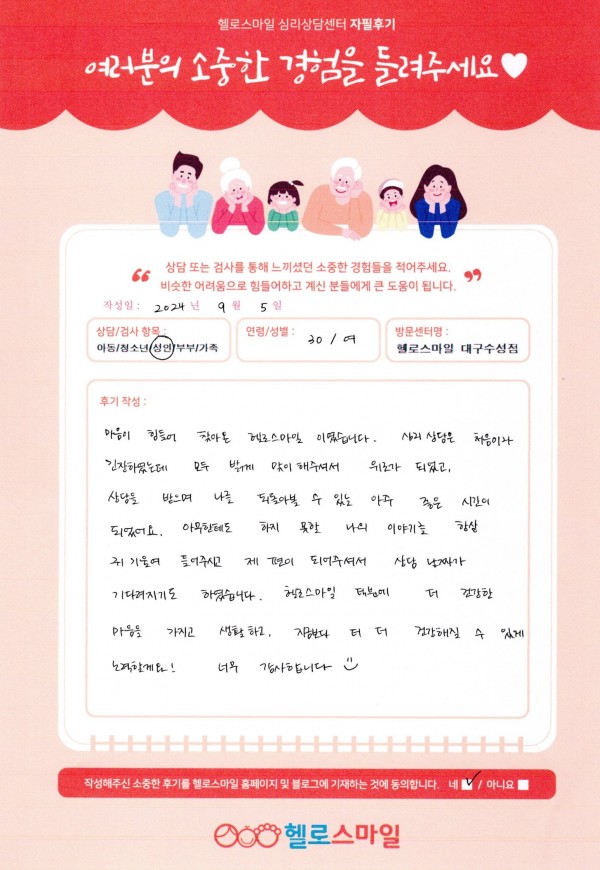 헬로스마일 심리상담센터 자필후기
여러분의 소중한 경험을 들려주세요
상담 또는 검사를 통해 느끼셨던 소중한 경험들을 적어주세요.
비슷한 어려움으로 힘들어하고 계신 분들에게 큰 도움이 됩니다.
작성일 : 2024 년 9 월 5 일
상담/검사 항목 :
아동/청소년/성인/부부/가족
연령/성별 :
30 / 여
방문센터명 :
헬로스마일 대구수성점
후기 작성 :
마음이 힘들어 찾아온 헬로스마일 이었습니다. 심리 상담은 처음이라
긴장하였는데 모두 밝게 맞이해주셔서 위로가 되었고,
상담을 받으며 나를 되돌아볼 수 있는 아주 좋은 시간이
되었어요. 아무한테도 하지 못할 나의 이야기를 항상
귀 기울여 들어주시고 제 편이 되어주셔서 상담 날짜가
기다려지기도 하였습니다. 헬로스마일 덕분에 더 건강한
마음을 가지고 생활 하고, 지금보다 더 더 건강해질 수 있게
노력할게요! 너무 감사합니다
작성해주신 소중한 후기를 헬로스마일 홈페이지 및 블로그에 기재하는 것에 동의합니다. 네 / 아니요
헬로스마일